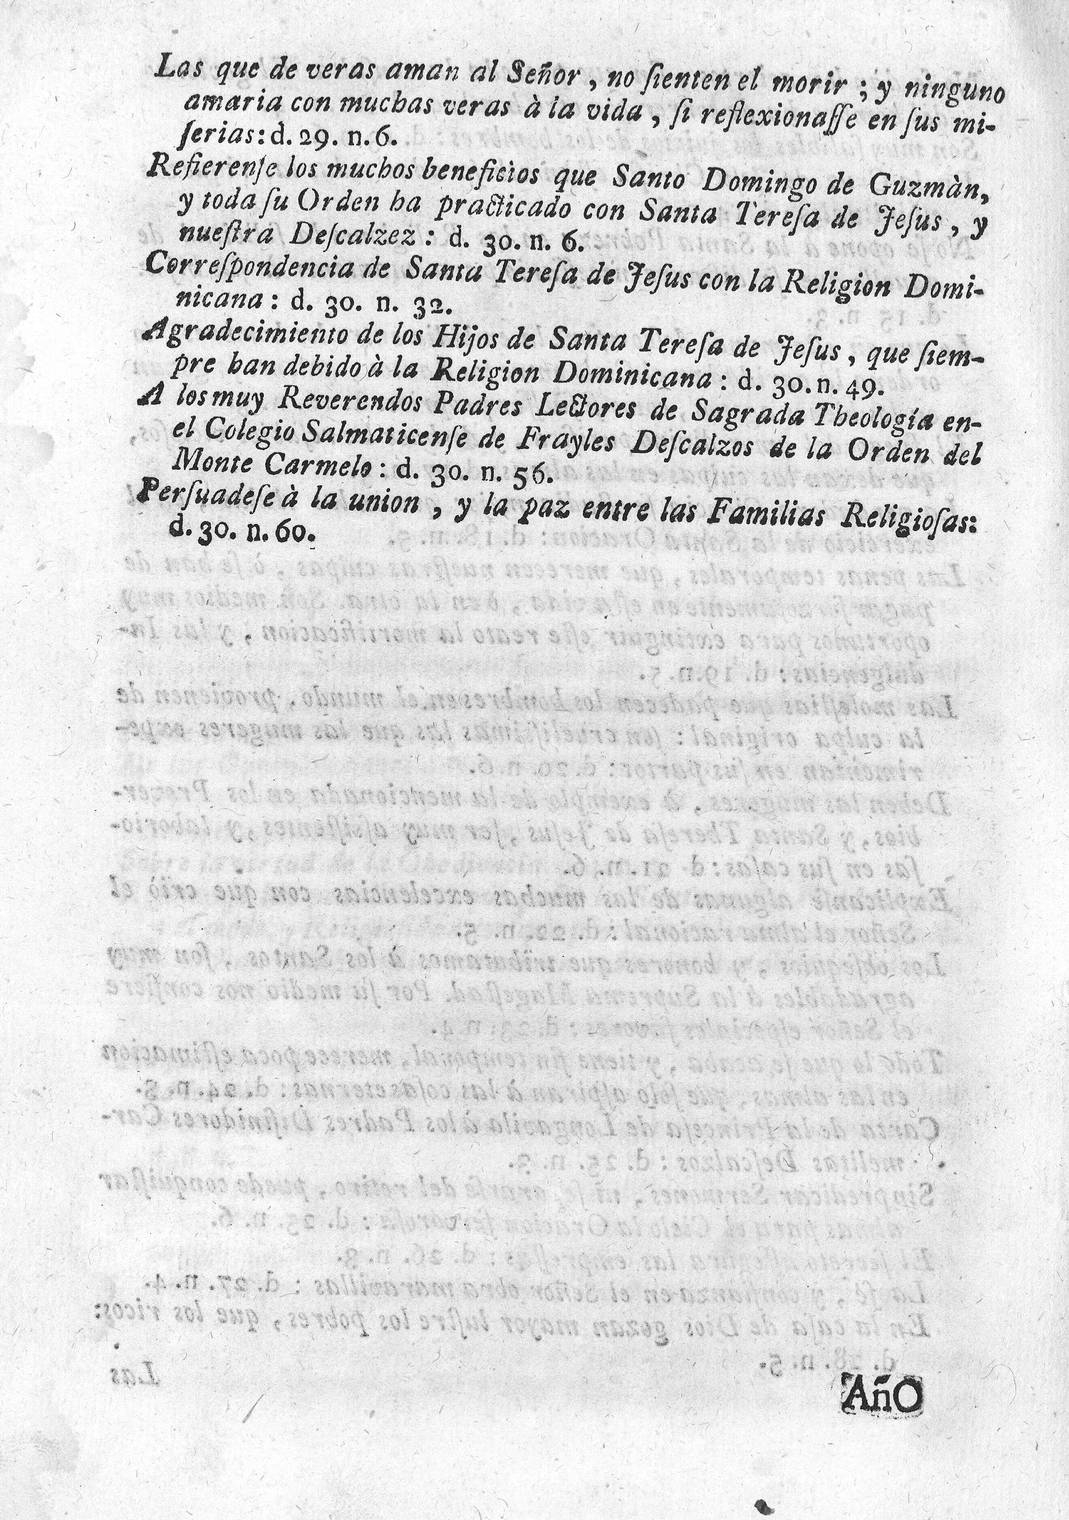 Las que de veras aman al Señor, no ſienten el morir; y ninguno
amaria con muchas veras à la vida, ſi reflexionaſſe en ſus mi-
ſerias: d. 29. n. 6.
Refierenſe los muchos beneficios que Santo Domingo de Guzmàn,
y toda ſu Orden ha practicado con Santa Tereſa de Jeſus, y
nueſtra Deſcalzez: d. 30. n. 6.
Correſpondencia de Santa Tereſa de Jeſus con la Religion Domi-
nicana: d. 30. n. 32.
Agradecimiento de los Hijos de Santa Tereſa de Jeſus, que ſiem-
pre han debido à la Religion Dominicana: d. 30. n. 49.
A los muy Reverendos Padres Lectores de Sagrada Theología en-
el Colegio Salmaticenſe de Frayles Deſcalzos de la Orden del
Monte Carmelo: d. 30. n. 56.
Perſuadeſe à la union, y la paz entre las Familias Religioſas:
d. 30. n. 60.
AñO